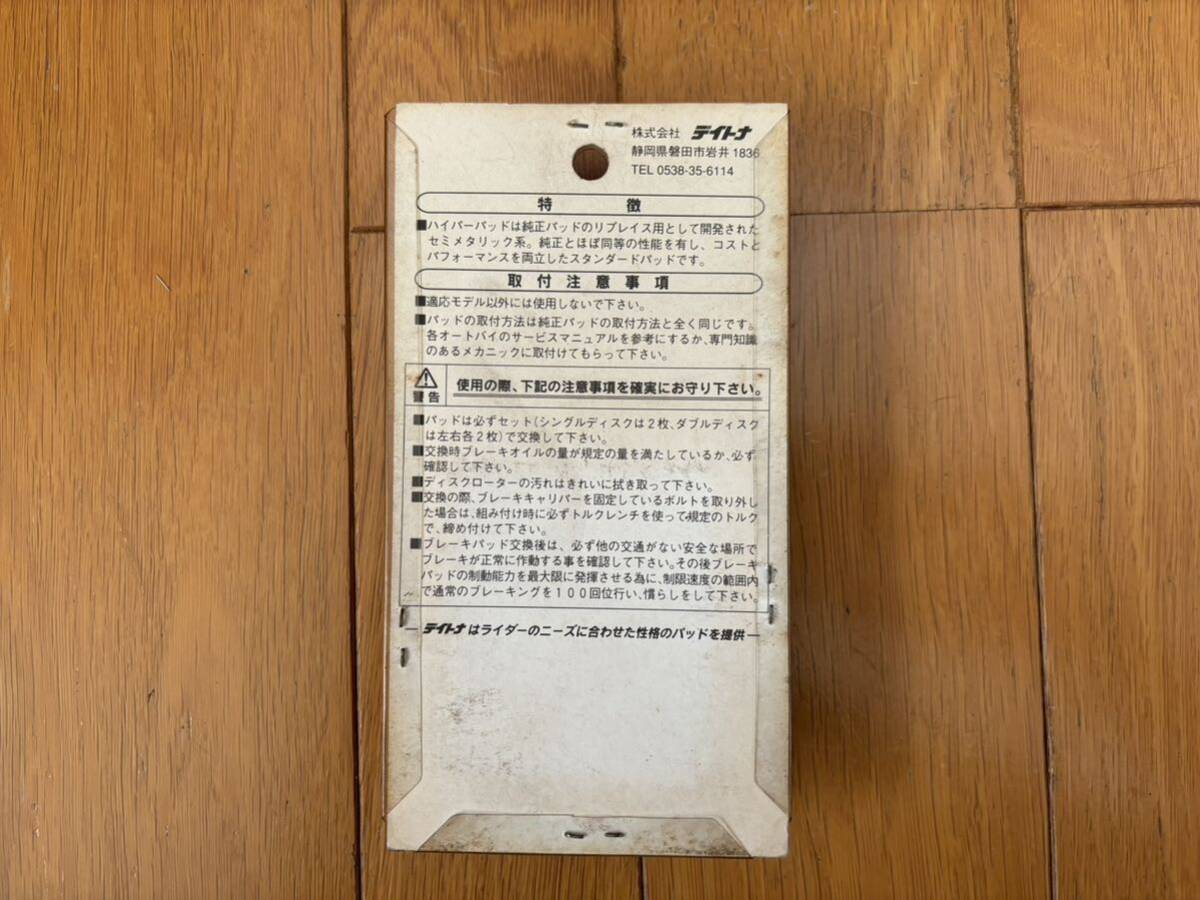 株式会社 デイトナ
静岡県磐田市岩井1836
TEL 0538-35-6114
特徴
■ハイパーパッドは純正パッドのリプレイス用として開発された
セミメタリック系。純正とほぼ同等の性能を有し、コストと
パフォーマンスを両立したスタンダードパッドです。
取付注意事項
■適応モデル以外には使用しないで下さい。
■パッドの取付方法は純正パッドの取付方法と全く同じです。
各オートバイのサービスマニュアルを参考にするか、専門知識
のあるメカニックに取付けてもらって下さい。
警告
使用の際、下記の注意事項を確実にお守り下さい。
■パッドは必ずセット(シングルディスクは2枚、ダブルディスク
は左右各2枚)で交換して下さい。
■交換時ブレーキオイルの量が規定の量を満たしているか、必ず
確認して下さい。
■ディスクローターの汚れはきれいに拭き取って下さい。
■交換の際、ブレーキキャリパーを固定しているボルトを取り外し
た場合は、組み付け時に必ずトルクレンチを使って規定のトルク
で、締め付けて下さい。
■ブレーキパッド交換後は、必ず他の交通がない安全な場所で
ブレーキが正常に作動する事を確認して下さい。その後ブレーキ
パッドの制動能力を最大限に発揮させる為に、制限速度の範囲内
で通常のブレーキングを100回位行い、慣らしをして下さい。
— デイトナはライダーのニーズに合わせた性格のパッドを提供 —